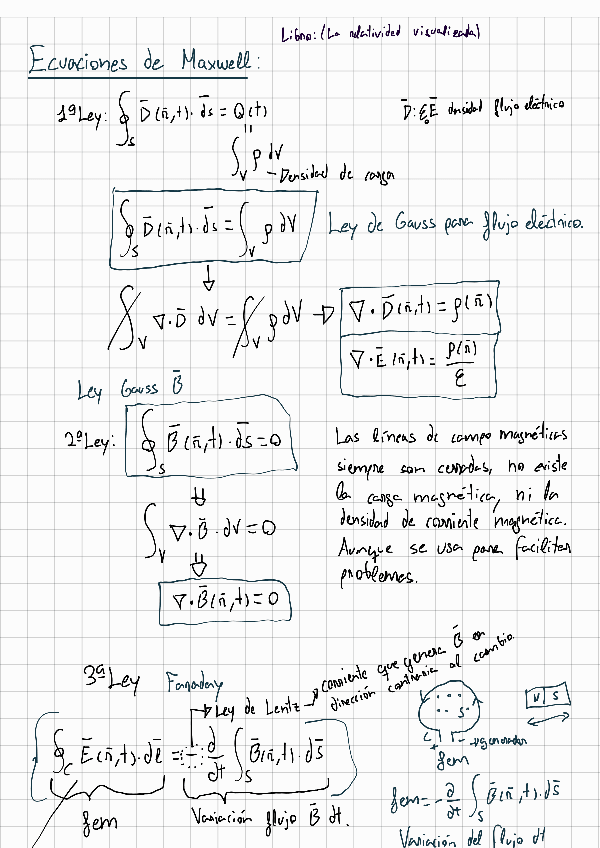 Libro: (La relatividad visualizada)
Ecuaciones de Maxwell:
1ª Ley: ∮_S D̄(r̄,t)·d̄s = Q(t)
D̄: ε₀Ē densidad flujo eléctrico
∫_V ρ dV
Densidad de carga
∮_S D̄(r̄,t)·d̄s = ∫_V ρ dV
Ley de Gauss para flujo eléctrico.
∫_V ∇·D̄ dV = ∫_V ρ dV → ∇·D̄(r̄,t) = ρ(r̄)
∇·Ē(r̄,t) = ρ(r̄)/ε
Ley Gauss B̄
2ª Ley: ∮_S B̄(r̄,t)·d̄s = 0
∫_V ∇·B̄·dV = 0
∇·B̄(r̄,t) = 0
Las líneas de campo magnéticas
siempre son cerradas, no existe
la carga magnética, ni la
densidad de corriente magnética.
Aunque se usa para faciliter
problemas.
3ª Ley Faraday
Ley de Lentz → corriente que genera B̄ en
dirección contraria al cambio.
∮_C Ē(r̄,t)·dℓ̄ = - d/dt ∫_S B̄(r̄,t)·d̄s
fem
Variación flujo B̄ dt.
S
N S
C + - → generador
fem
fem = - ∂/∂t ∫_S B̄(r̄,t)·d̄s
Variación del flujo dt